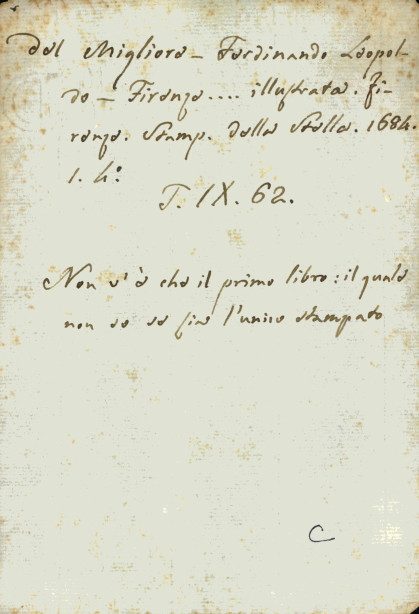 Del Migliore – Ferdinando Leopol-
do – Firenze.... illustrata. Fi-
renze. Stamp. della Stella. 1684.
1. 4.°
T. IX. 62.
Non v'è che il primo libro: il quale
non so se sia l'unico stampato
C